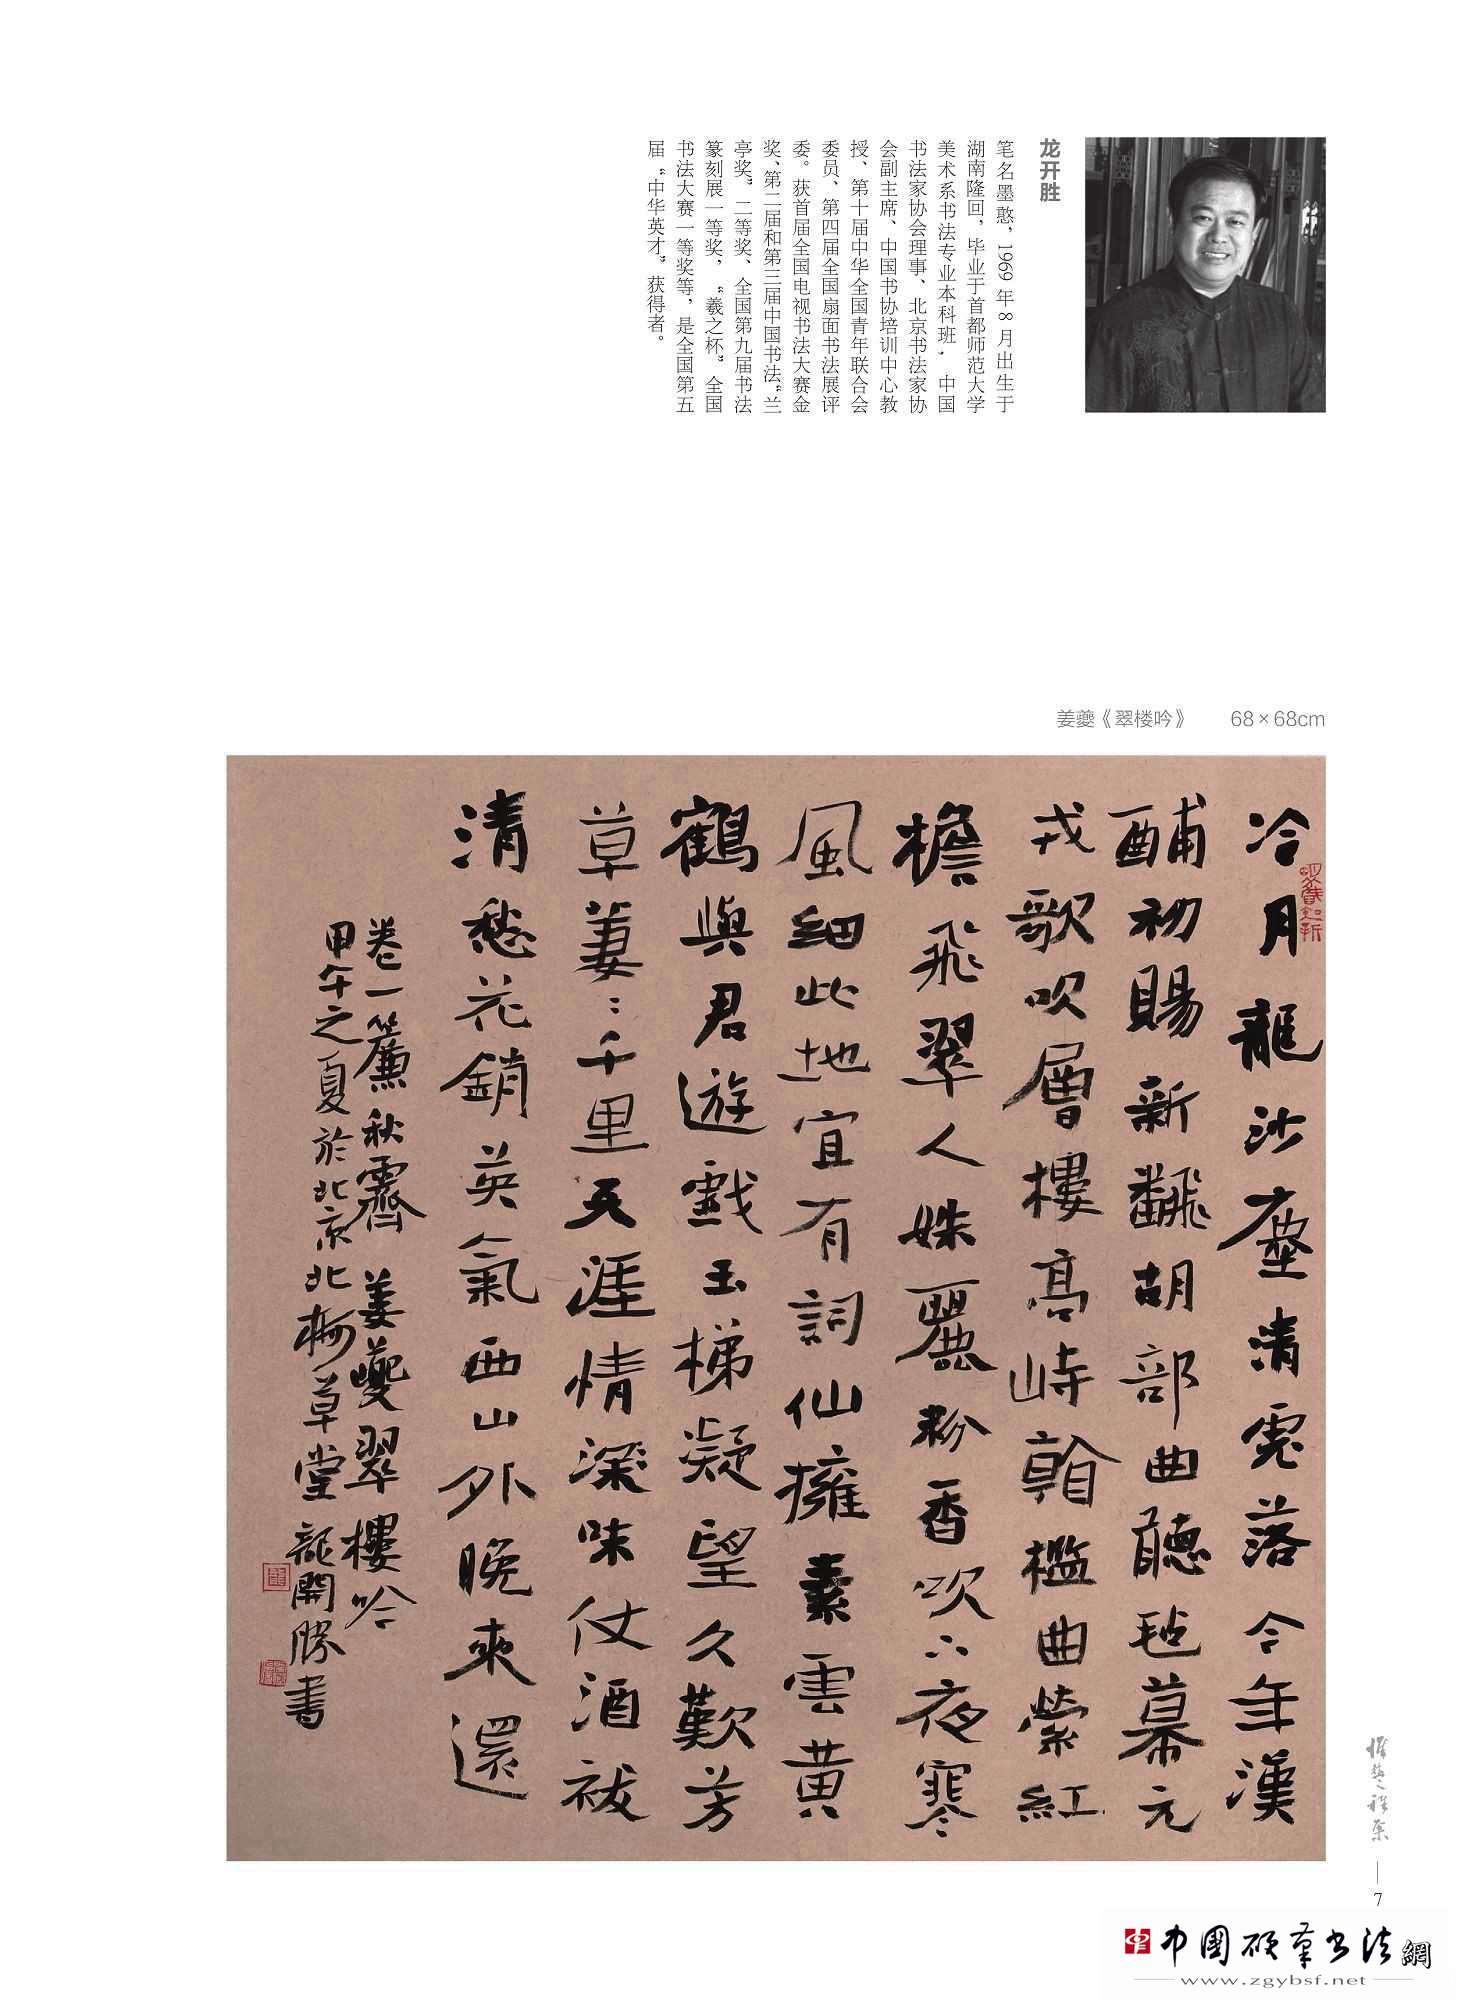 龙开胜
笔名墨憨，1969年8月出生于
湖南隆回，毕业于首都师范大学
美术系书法专业本科班，中国
书法家协会理事、北京书法家协
会副主席、中国书协培训中心教
授、第十届中华全国青年联合会
委员、第四届全国扇面书法展评
委。获首届全国电视书法大赛金
奖、第二届和第三届中国书法“兰
亭奖”二等奖、全国第九届书法
篆刻展一等奖，“羲之杯”全国
书法大赛一等奖等，是全国第五
届“中华英才”获得者。
姜夔《翠楼吟》 68×68cm
冷月龍沙塵清虎落今年漢
酺初賜新翻胡部曲聽氊幕元
戎歌吹層樓高峙㪇檻曲縈紅
檐飛翠人姝麗粉香吹下夜寒
風細此地宜有詞仙擁素雲黄
鶴與君遊戲玉梯凝望久歎芳
草萋〻千里天涯情深味仗酒祓
清愁花銷英氣西山外晚來還
卷一簾秋霽 姜夔翠樓吟
甲午之夏於北京北柳草堂龍開勝書
7
中国硬笔书法網
www.zgybsf.net